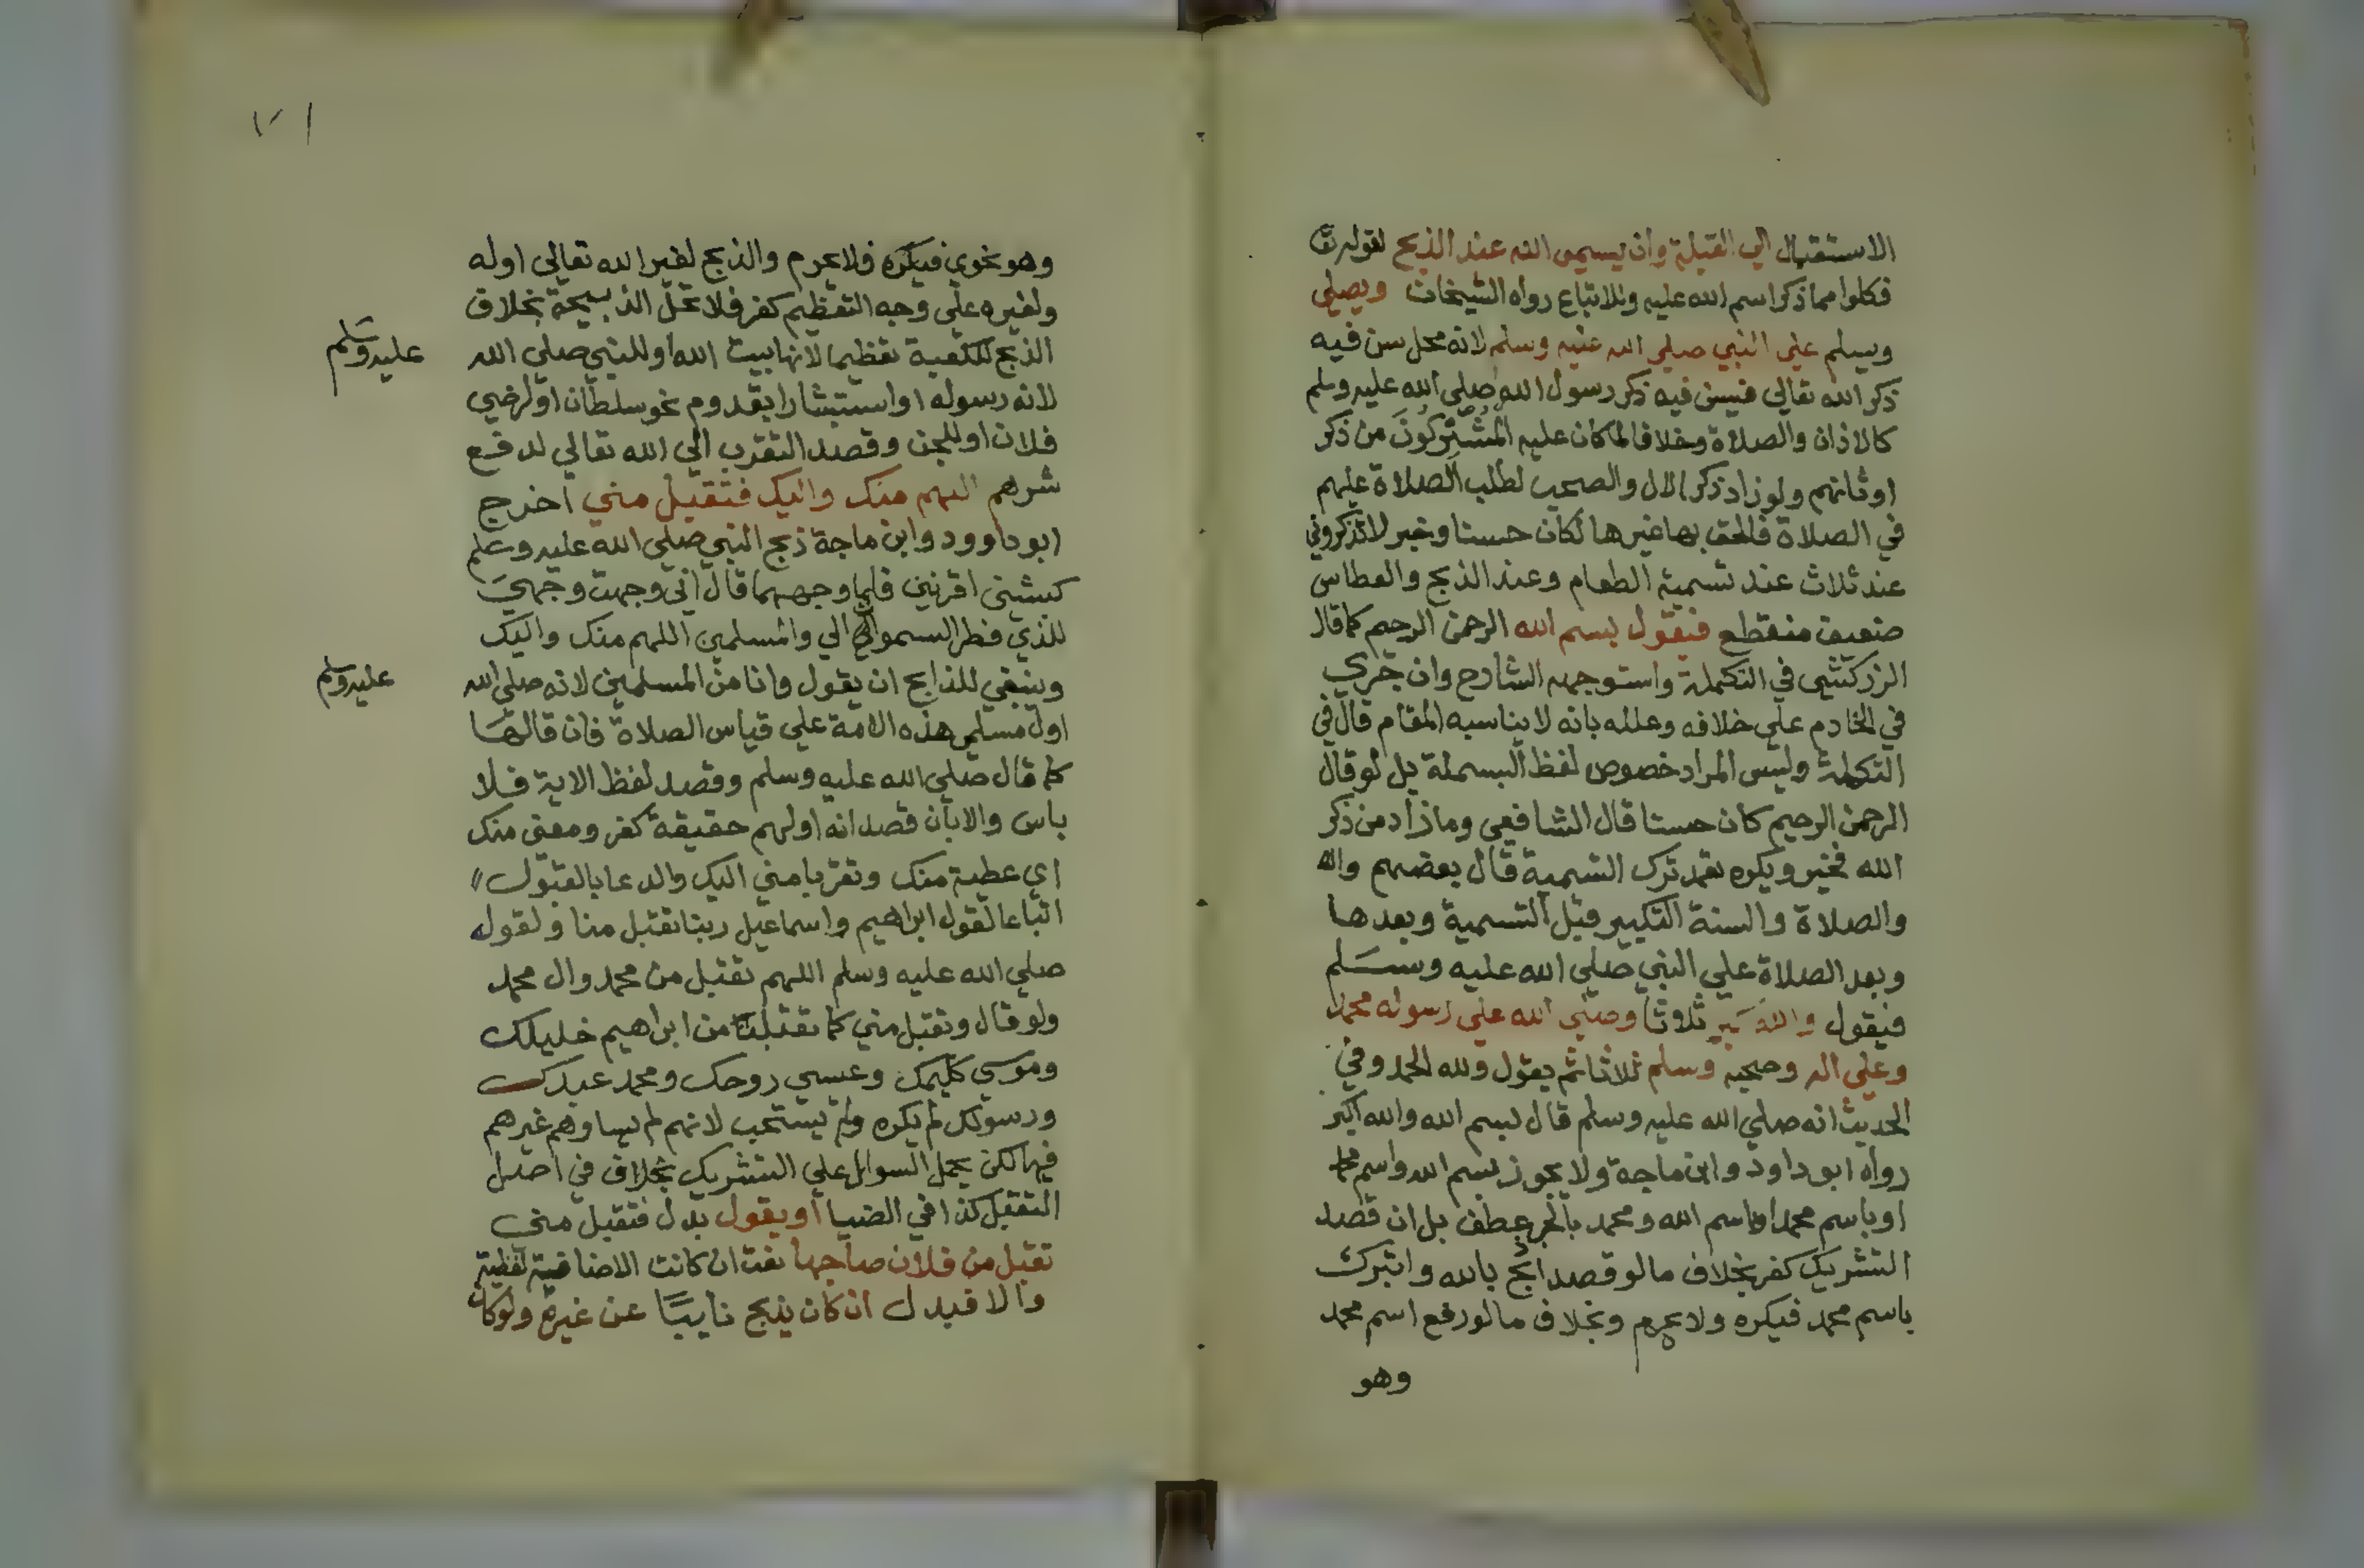 الاستقبال الي القبلة وان يسمي الله عند الذبح لقوله تعا
فكلوا مما ذكر اسم الله عليه وللاتباع رواه الشيخان ويصلي
وسلم علي النبي صلي الله عليه وسلم لانه محل سن فيه
ذكر الله تعالي فيسن فيه ذكر رسول الله صلي الله عليه وسلم
كالاذان والصلاة وخلافا لما كان عليه المشركون من ذكر
اوثانهم ولو زاد ذكر الال والصحب لطلب الصلاة عليهم
في الصلاة فالحق بها غيرها لكان حسنا وخبر لا تذكروني
عند ثلاث عند تسمية الطعام وعند الذبح والعطاس
ضعيف منقطع فيقول بسم الله الرحمن الرحيم كما قال
الزركشي في التكملة واستوجهه الشارح وان جري
في الخادم علي خلافه وعلله بانه لا يناسبه المقام قال في
التكملة وليس المراد خصوص لفظ البسملة بل لو قال
الرحمن الرحيم كان حسنا قال الشافعي وما زاد من ذكر
الله فخير ويكره تعمد ترك التسمية قال بعضهم
والصلاة والسنة التكبير قبل التسمية وبعدها
وبعد الصلاة علي النبي صلي الله عليه وسلم
فيقول والله اكبر ثلاثا وصلي الله علي رسوله محمد
وعلي اله وصحبه وسلم ثلاثا ثم يقول ولله الحمد وفي
الحديث انه صلي الله عليه وسلم قال بسم الله والله اكبر
رواه ابو داود وابن ماجة ولا يجوز بسم الله واسم محمد
او باسم محمد او باسم الله ومحمد بالجر عطف بل ان قصد
التشريك كفر بخلاف ما لو قصد اذبح بالله واتبرك
باسم محمد فيكره ولا يحرم وبخلاف ما لو رفع اسم محمد
وهو
٧١
وهو نحوي فيكره فلا يحرم والذبح لغير الله تعالي اوله
ولغيره علي وجه التعظيم كفر فلا تحل الذبيحة بخلاف
الذبح للكعبة تعظيما لانها بيت الله او للنبي صلي الله
عليه وسلم
لانه رسوله او استبشارا بقدوم نحو سلطان او لرضي
فلان او للجن وقصد التقرب الي الله تعالي لدفع
شرهم اللهم منك واليك فتقبل مني اخرج
ابو داوود وابن ماجة ذبح النبي صلي الله عليه وسلم
كبشين اقرنين فلما وجههما قال اني وجهت وجهي
للذي فطر السموات الي والمسلمين اللهم منك واليك
وينبغي للذابح ان يقول وانا من المسلمين لانه صلي الله
عليه وسلم
اول مسلمي هذه الامة علي قياس الصلاة فان قالها
كما قال صلي الله عليه وسلم وقصد لفظ الاية فلا
باس والا بان قصد انه اولهم حقيقة كفر ومعني منك
اي عطية منك وتقربا مني اليك والدعا بالقبول
اتباعا لقول ابراهيم واسماعيل ربنا تقبل منا ولقوله
صلي الله عليه وسلم اللهم تقبل من محمد وال محمد
ولو قال وتقبل مني كما تقبلت من ابراهيم خليلك
وموسي كليمك وعيسي روحك ومحمد عبدك
ورسولك لم يكره ولم يستحب لانهم لم يساوهم غيرهم
فيها لكن يحمل السوال علي التشريك بخلاف في اصل
التقبل كذا في الضيا او يقول بدل فتقبل مني
تقبل من فلان صاحبها نعت ان كانت الاضافية لفظية
والا فبدل ان كان يذبح نايبا عن غيره ولو كان